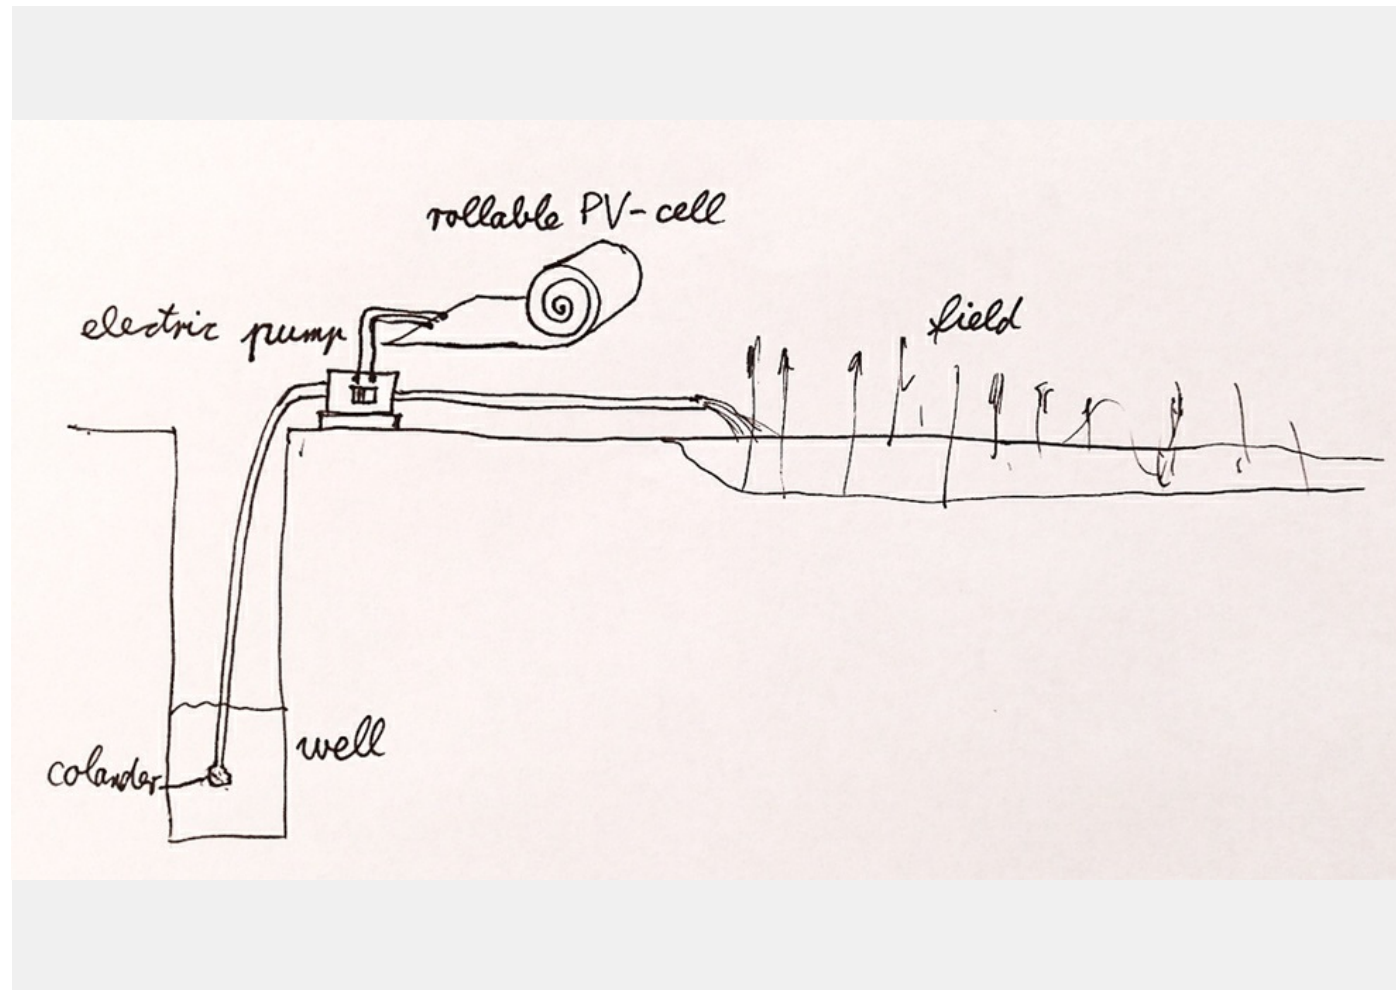 rollable PV-cell
electric pump
field
well
colander